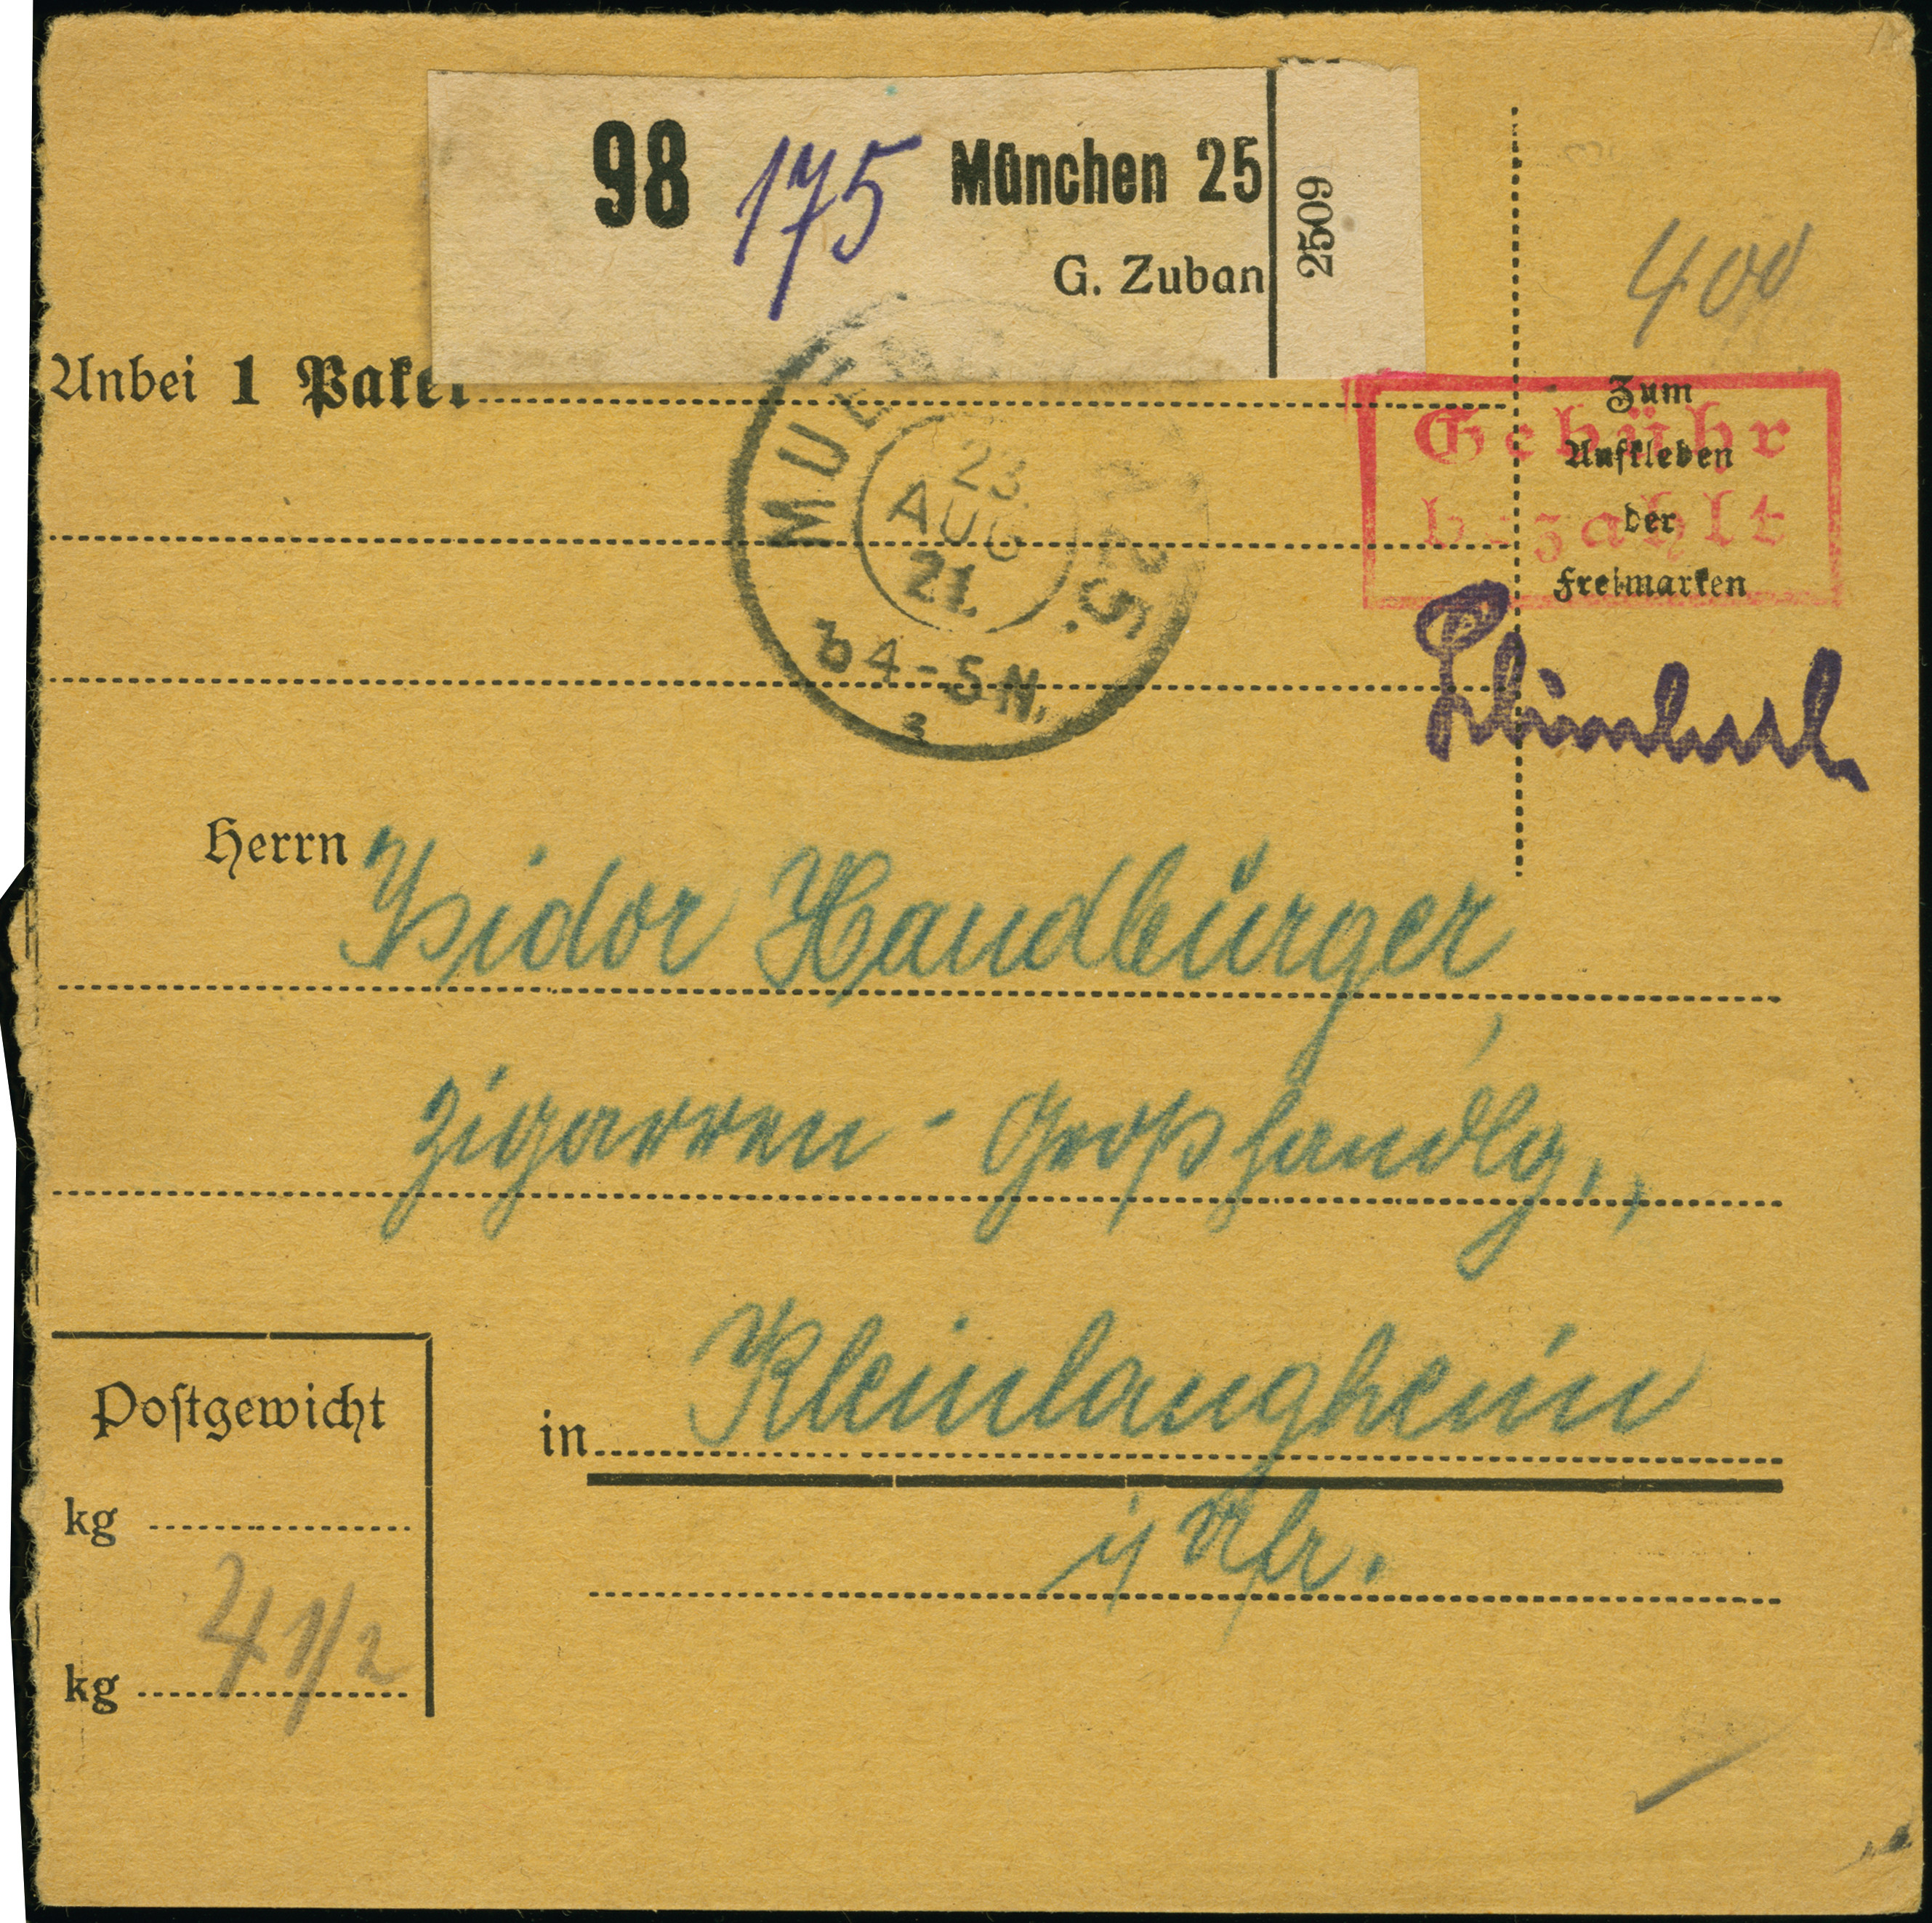 98 175 München 25
G. Zuban
2509
400
Anbei 1 Paket
MUE 25.
23.
AUG
21.
4-5 N.
Gebühr
bezahlt
Zum
Aufkleben
der
Freimarken
Herrn Isidor Handbürger,
Zigarren - Großhandlg.,
in Kleinlangheim
Ufr.
Postgewicht
kg
kg 4 1/2